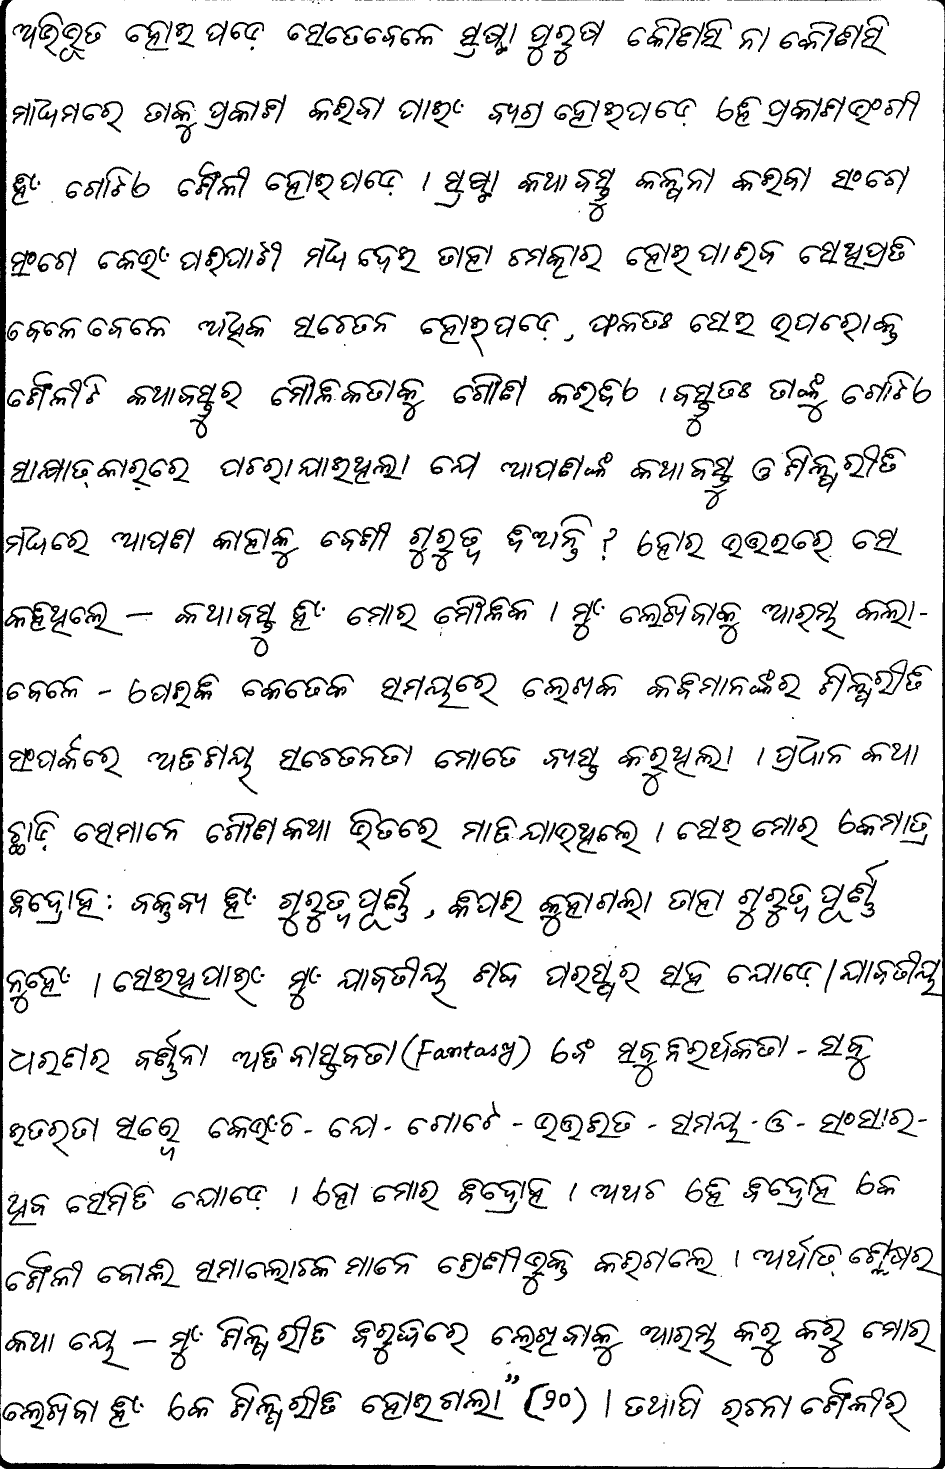 ଅଭିଭୂତ ହୋଇ ପଡ଼େ ସେତେବେଳେ ସ୍ରଷ୍ଟା ପୁରୁଷ କୌଣସି ନା କୌଣସି
ମାଧ୍ୟମରେ ତାକୁ ପ୍ରକାଶ କରିବା ପାଇଂ ବ୍ୟଗ୍ର ହୋଇପଡ଼େ ହେ ପ୍ରକାଶଭଂଗୀ
ହିଂ ଗୋଟିଏ ଶୈଳୀ ହୋଇପଡ଼େ । ସ୍ରଷ୍ଟା କଥାବସ୍ତୁ କଳ୍ପନା କରିବା ସଂଗେ
ସଂଗେ କେଉଂ ପରିପାଟୀ ମଧ୍ୟ ଦେଇ ତାହା ଚମତ୍କାର ହୋଇପାରିବ ସେଥିପ୍ରତି
ବେଳେବେଳେ ଅଧିକ ସଚେତନ ହୋଇପଡ଼େ, ଫଳତଃ ସେଇ ଉପରୋକ୍ତ
ଶୈଳୀଟି କଥାବସ୍ତୁର ମୌଳିକତାକୁ ଗୌଣ କରିଦିଏ । ବସ୍ତୁତଃ ତାଙ୍କୁ ଗୋଟିଏ
ସାକ୍ଷାତ୍କାରରେ ପଚରାଯାଇଥିଲା ଯେ ଆପଣଙ୍କ କଥାବସ୍ତୁ ଓ ଶିଳ୍ପରୀତି
ମଧ୍ୟରେ ଆପଣ କାହାକୁ ବେଶୀ ଗୁରୁତ୍ୱ ଦିଅନ୍ତି ? ହୋର ଉତ୍ତରରେ ସେ
କହିଥିଲେ — କଥାବସ୍ତୁ ହିଂ ମୋର ମୌଳିକ । ମୁଂ ଲେଖିବାକୁ ଆରମ୍ଭ କଲା-
ବେଳେ - ସେଇ କେତେକ ସମୟରେ ଲେଖକ କବିମାନଙ୍କର ଶିଳ୍ପରୀତି
ସଂପର୍କରେ ଅତିଶୟ ସଚେତନତା ମୋତେ ବ୍ୟସ୍ତ କରୁଥିଲା । ପ୍ରଧାନ କଥା
ଛାଡ଼ି ସେମାନେ ଗୌଣକଥା ଭିତରେ ମାତିଯାଉଥିଲେ । ସେଇ ମୋର ଏକମାତ୍ର
ବିଦ୍ରୋହ : ବକ୍ତବ୍ୟ ହିଂ ଗୁରୁତ୍ୱପୂର୍ଣ୍ଣ, କିପରି କୁହାଗଲା ତାହା ଗୁରୁତ୍ୱପୂର୍ଣ୍ଣ
ନୁହେଂ । ସେଇଥିପାଇଂ ମୁଂ ଯାବତୀୟ ଶବ୍ଦ ପରସ୍ପର ସହ ଯୋଡ଼େ । ଯାବତୀୟ
ଧରଣର ବର୍ଣ୍ଣନା ଅତିବାସ୍ତବତା (Fantasy) ଏବଂ ସବୁ ନିରର୍ଥକତା - ସବୁ
ଇତରତା ସତ୍ତ୍ୱେ କେଉଂଠି - ଯେ - ଗୋଟେ - ଉତ୍ତରିତ - ସମୟ - ଓ - ସଂସାର -
ଥିବ ସେମିତି ଯୋଡ଼େ । ହୋ ମୋର ବିଦ୍ରୋହ । ଅଥଚ ହେ ବିଦ୍ରୋହ ଏକ
ଶୈଳୀ ବୋଲି ସମାଲୋଚକମାନେ ଶ୍ରେଣୀଭୁକ୍ତ କରିଗଲେ । ଅର୍ଥାତ୍ ଶ୍ଳେଷର
କଥା ଯେ — ମୁଂ ଶିଳ୍ପରୀତି ବିରୁଦ୍ଧରେ ଲେଖିବାକୁ ଆରମ୍ଭ କରୁ କରୁ ମୋର
ଲେଖିବା ହିଂ ଏକ ଶିଳ୍ପରୀତି ହୋଇଗଲା” (୨୦) । ତଥାପି ରଚନା ଶୈଳୀର